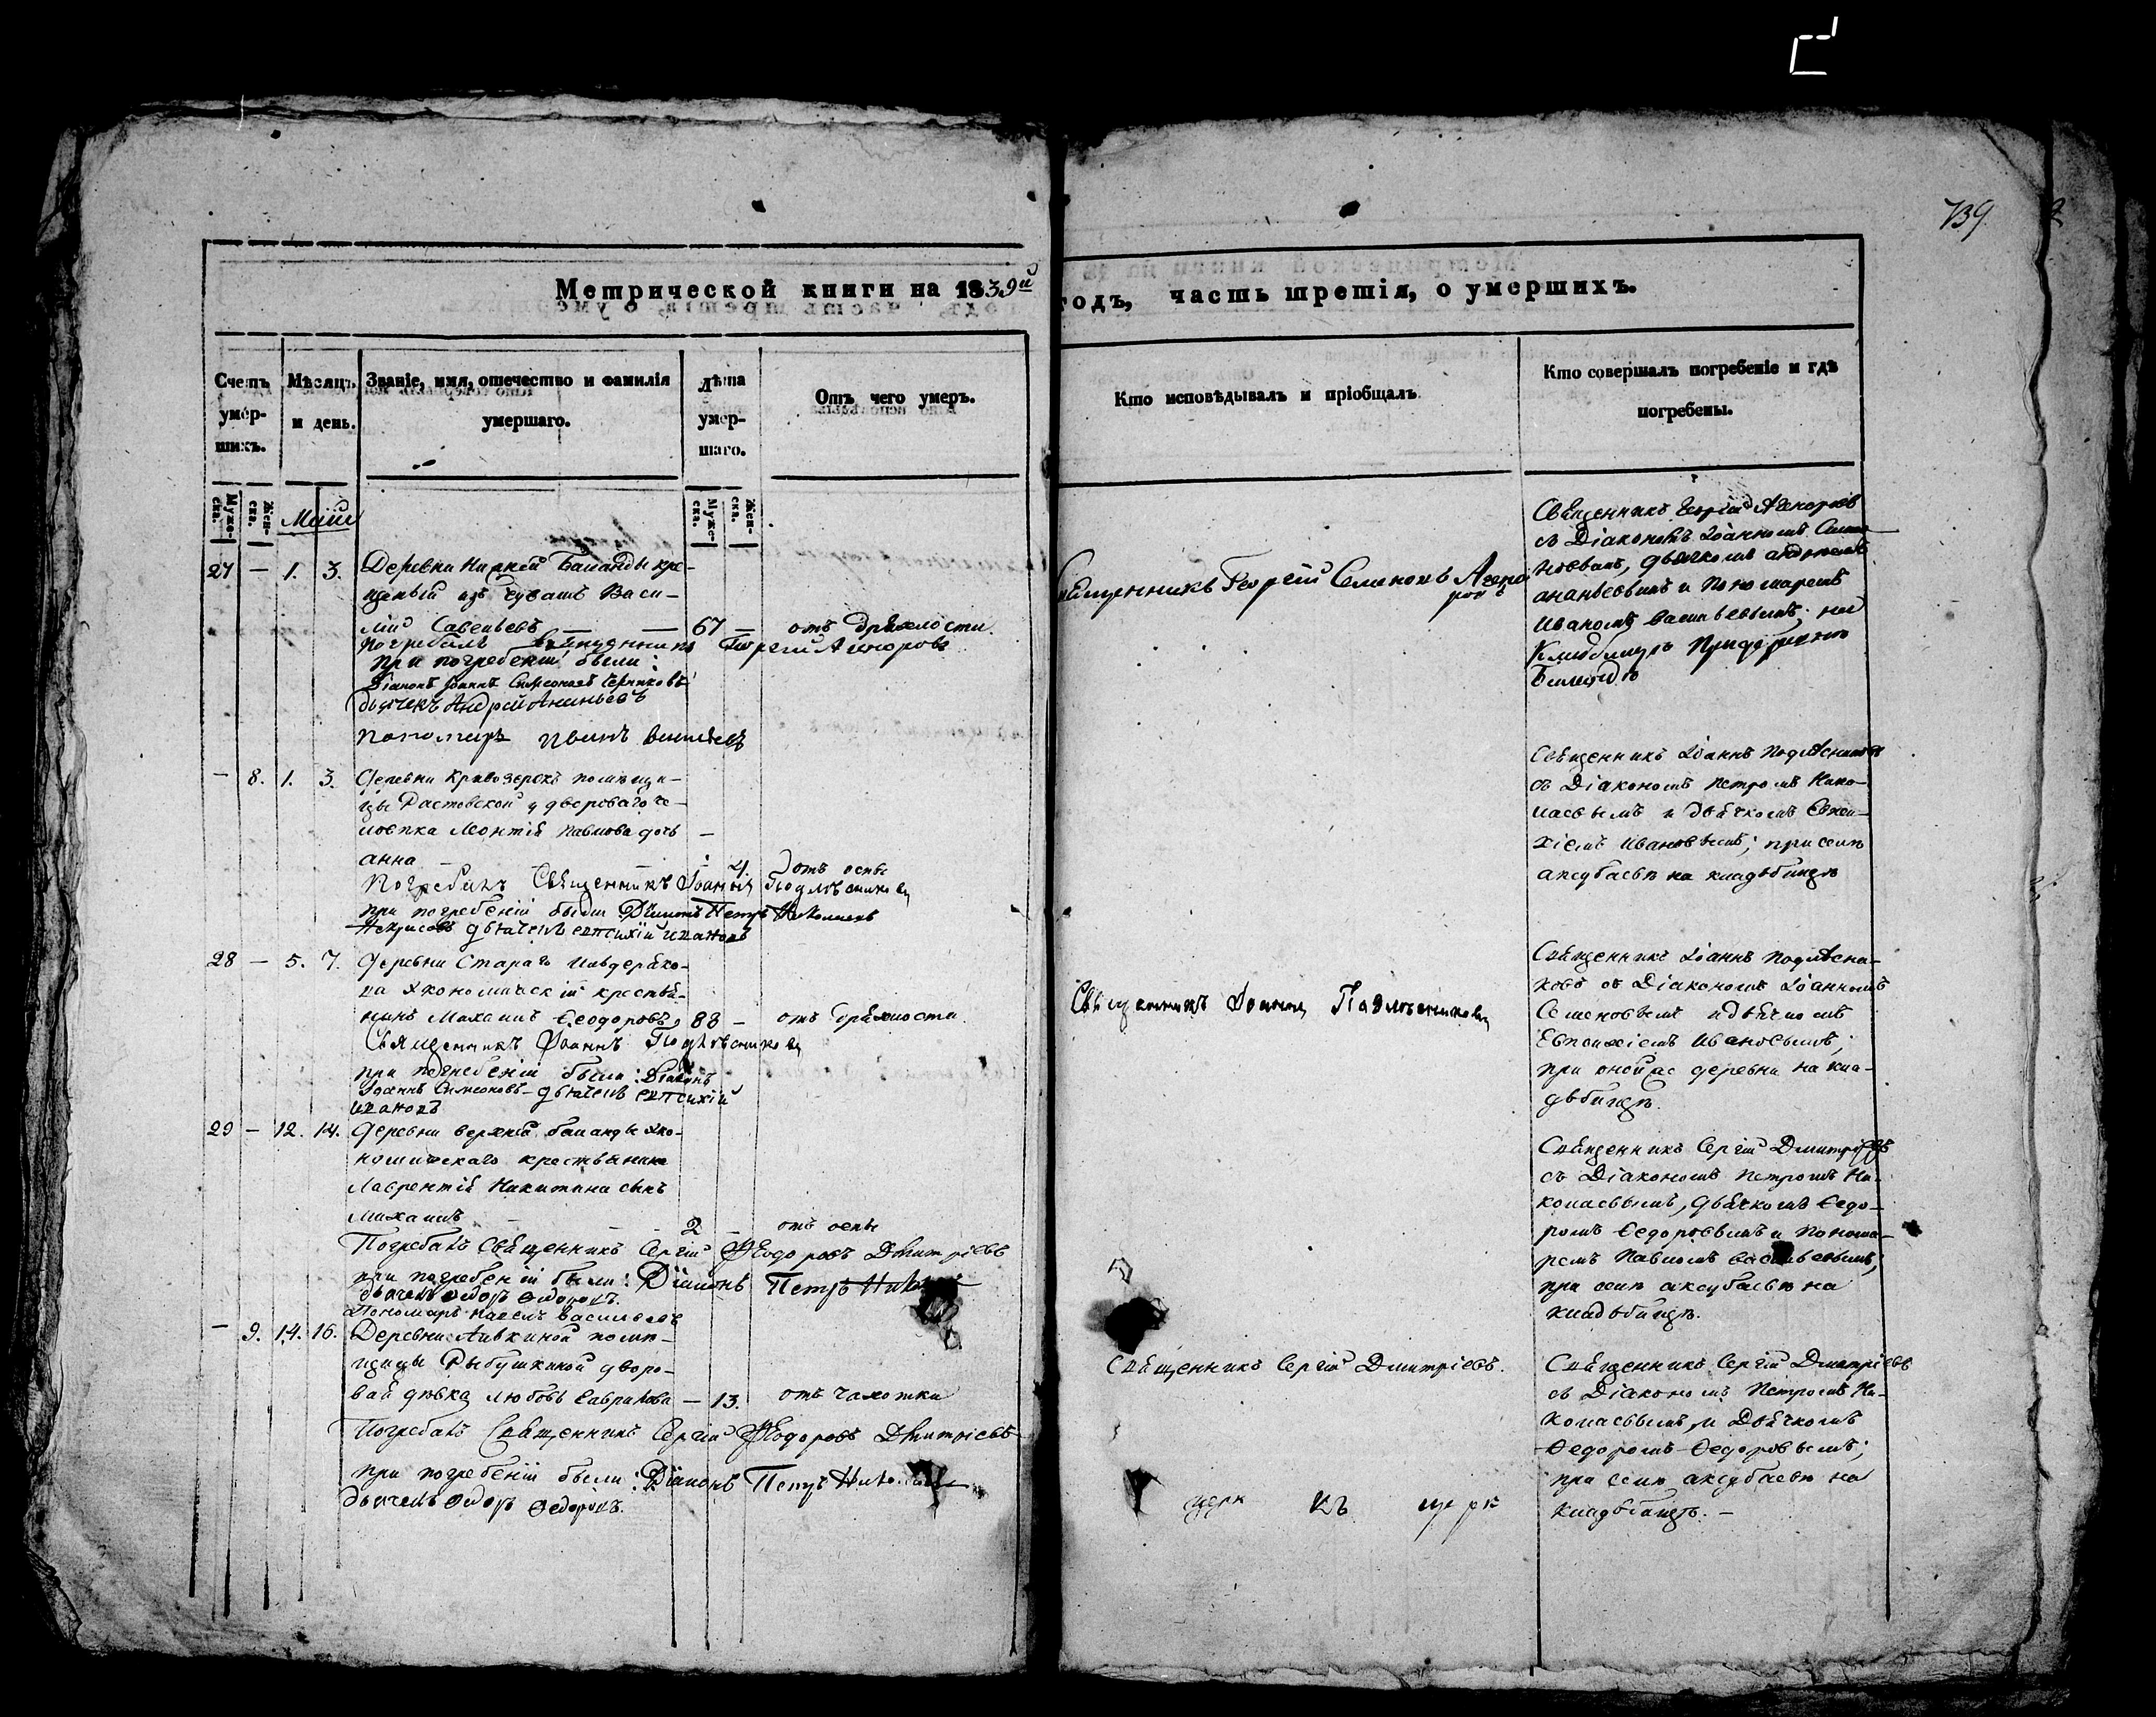 739
Метрической книги на 1839й годъ, часть третія, о умершихъ.
Счетъ умер-шихъ.
Мѣсяцъ и день.
Званіе, имя, отечество и фамилія умершаго.
Лѣта умер-шаго.
Отъ чего умеръ.
Кто исповѣдывалъ и пріобщалъ
Кто совершалъ погребеніе и гдѣ погребены.
Муже-ска.
Жен-ска.
Муже-ска.
Жен-ска.
Маій
27 — 1. 3. Деревни Нижней Баланды кре-
щеный изъ чувашъ Васи-
лій Савельевъ — — 67 — отъ дряхлости.
Погребалъ Священникъ Георгій Агноровъ
при погребеніи были:
Діаконъ Іоаннъ Симеоновъ
дьячекъ Андрей Ананьевъ
пономарь Иванъ Васильевъ
Священникъ Георгій
Священникъ Георгій
съ Діакономъ Іоанномъ
дьячкомъ Андреемъ
Ананьевымъ и Пономаремъ
Иваномъ Васильевымъ; на
Кладбищѣ При деревнѣ
— 8. 1. 3. Деревни Кривозерокъ помѣщи-
цы Растовской у двороваго че-
ловѣка Леонтія Павлова дочь —
Анна 4. отъ оспы
Погребалъ Священникъ Іоаннъ Подлѣсниковъ
при погребеніи были Діаконъ Петръ Николаевъ
дьячекъ Евпсихій Ивановъ
Священникъ Іоаннъ Подлѣсниковъ
съ Діакономъ Петромъ Нико-
лаевымъ и Дьячкомъ Евпси-
хіемъ Ивановымъ; при селѣ
аксубаевѣ на кладбищѣ
28 — 5. 7. Деревни Стараго Ильдеряко-
ва Экономическій крестья-
нинъ Михаилъ Ѳеодоровъ, 88 — отъ дряхлости.
Священникъ Іоаннъ Подлѣсниковъ
при погребеніи были: Діаконъ
Іоаннъ Симеоновъ дьячекъ Евпсихій
Ивановъ
Священникъ Іоаннъ Подлѣсниковъ
Священникъ Іоаннъ Подлѣсни-
ковъ съ Діакономъ Іоанномъ
Семеновымъ и дьячкомъ
Евпсихіемъ Ивановымъ;
при оной же деревни на кла-
дбищѣ.
29 — 12. 14. Деревни верхней баланды эко-
номическаго крестьянина
Лаврентія Никитина сынъ
Михаилъ 2 — отъ оспы
Погребалъ Священникъ Сергій Ѳеодоровъ Дмитріевъ
при погребеніи были: Діаконъ Петръ
дьячекъ Ѳедоръ Ѳедоровъ.
Пономарь Павелъ Васильевъ
Священникъ Сергій Дмитріевъ
съ Діакономъ Петромъ Ни-
колаевымъ, Дьячкомъ Ѳедо-
ромъ Ѳедоровымъ и Понома-
ремъ Павломъ Васильевымъ;
при селѣ аксубаевѣ на
кладбищѣ.
— 9. 14. 16. Деревни Аивкиной помѣ-
щицы Рыбушкиной дворо-
вая дѣвка Любовь Гаврилова — 13. отъ чахотки
Погребалъ Священникъ Сергій Ѳеодоровъ Дмитріевъ
при погребеніи были: Діаконъ Петръ
дьячекъ Ѳедоръ Ѳедоровъ.
Священникъ Сергій Дмитріевъ.
церк къ церк
Священникъ Сергій Дмитріевъ
съ Діакономъ Петромъ Ни-
колаевымъ, и Дьячкомъ
Ѳедоромъ Ѳедоровымъ;
при селѣ аксубаевѣ на
кладбищѣ. —